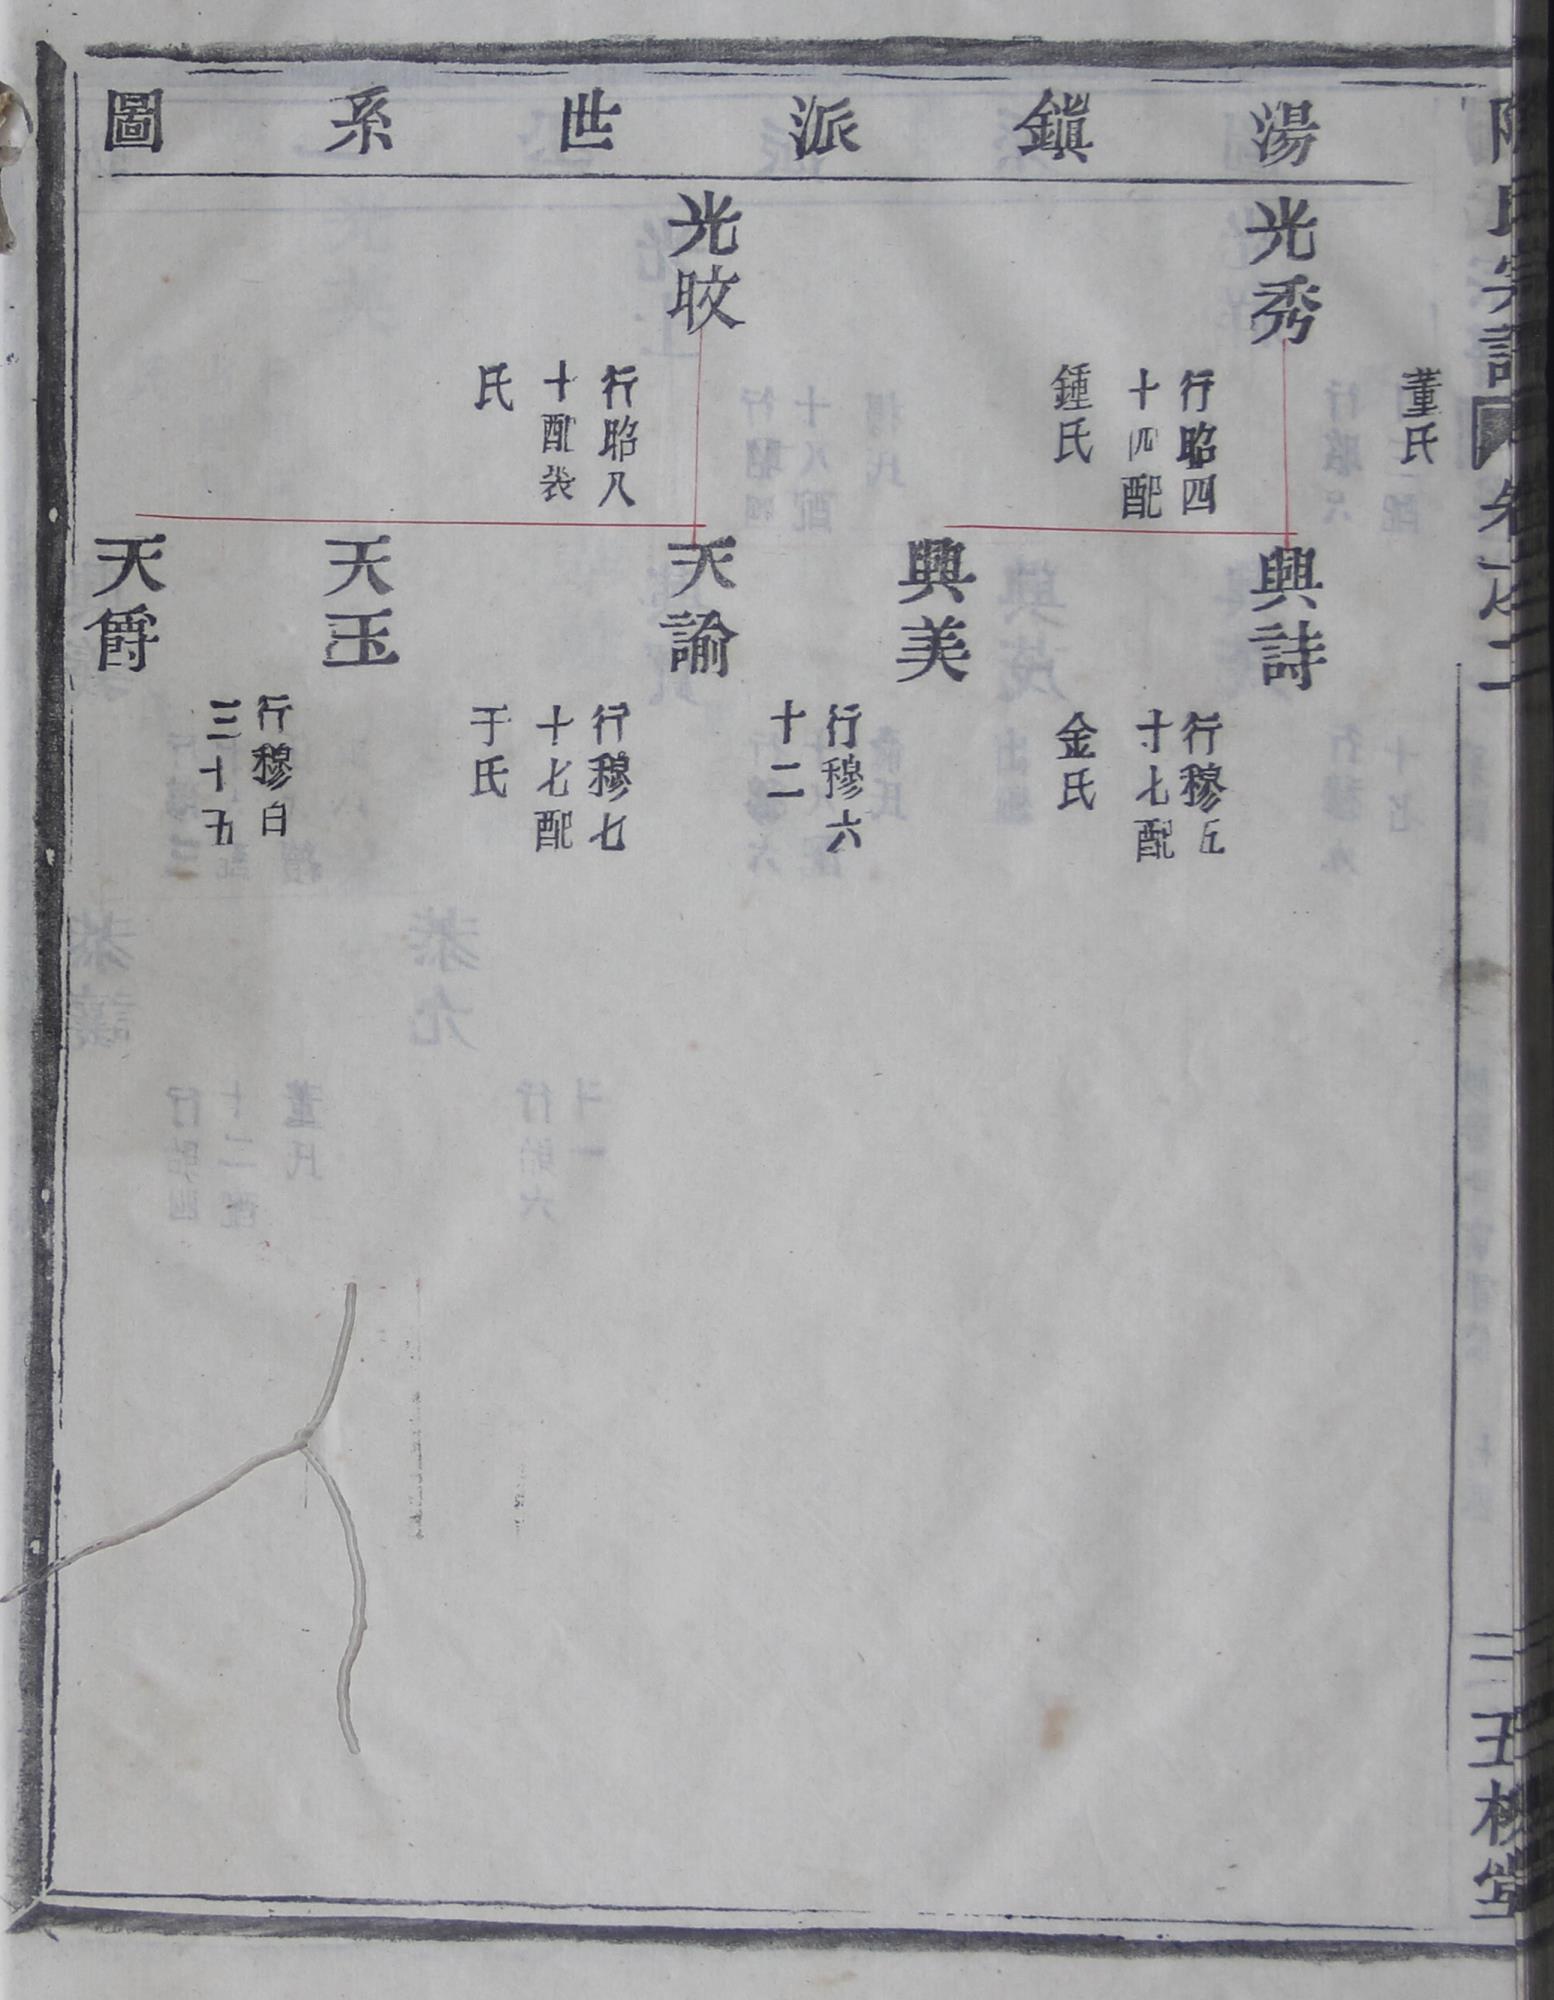 氏宗譜
卷之二
二
五桂堂
湯鎮派世系圖
董氏
光秀
行昭四
十四配
鍾氏
興詩
行穆五
十七配
金氏
興美
光旼
行昭八
十配裴
氏
天諭
行穆六
十二
天玉
行穆七
十七配
于氏
天爵
行穆百
三十五